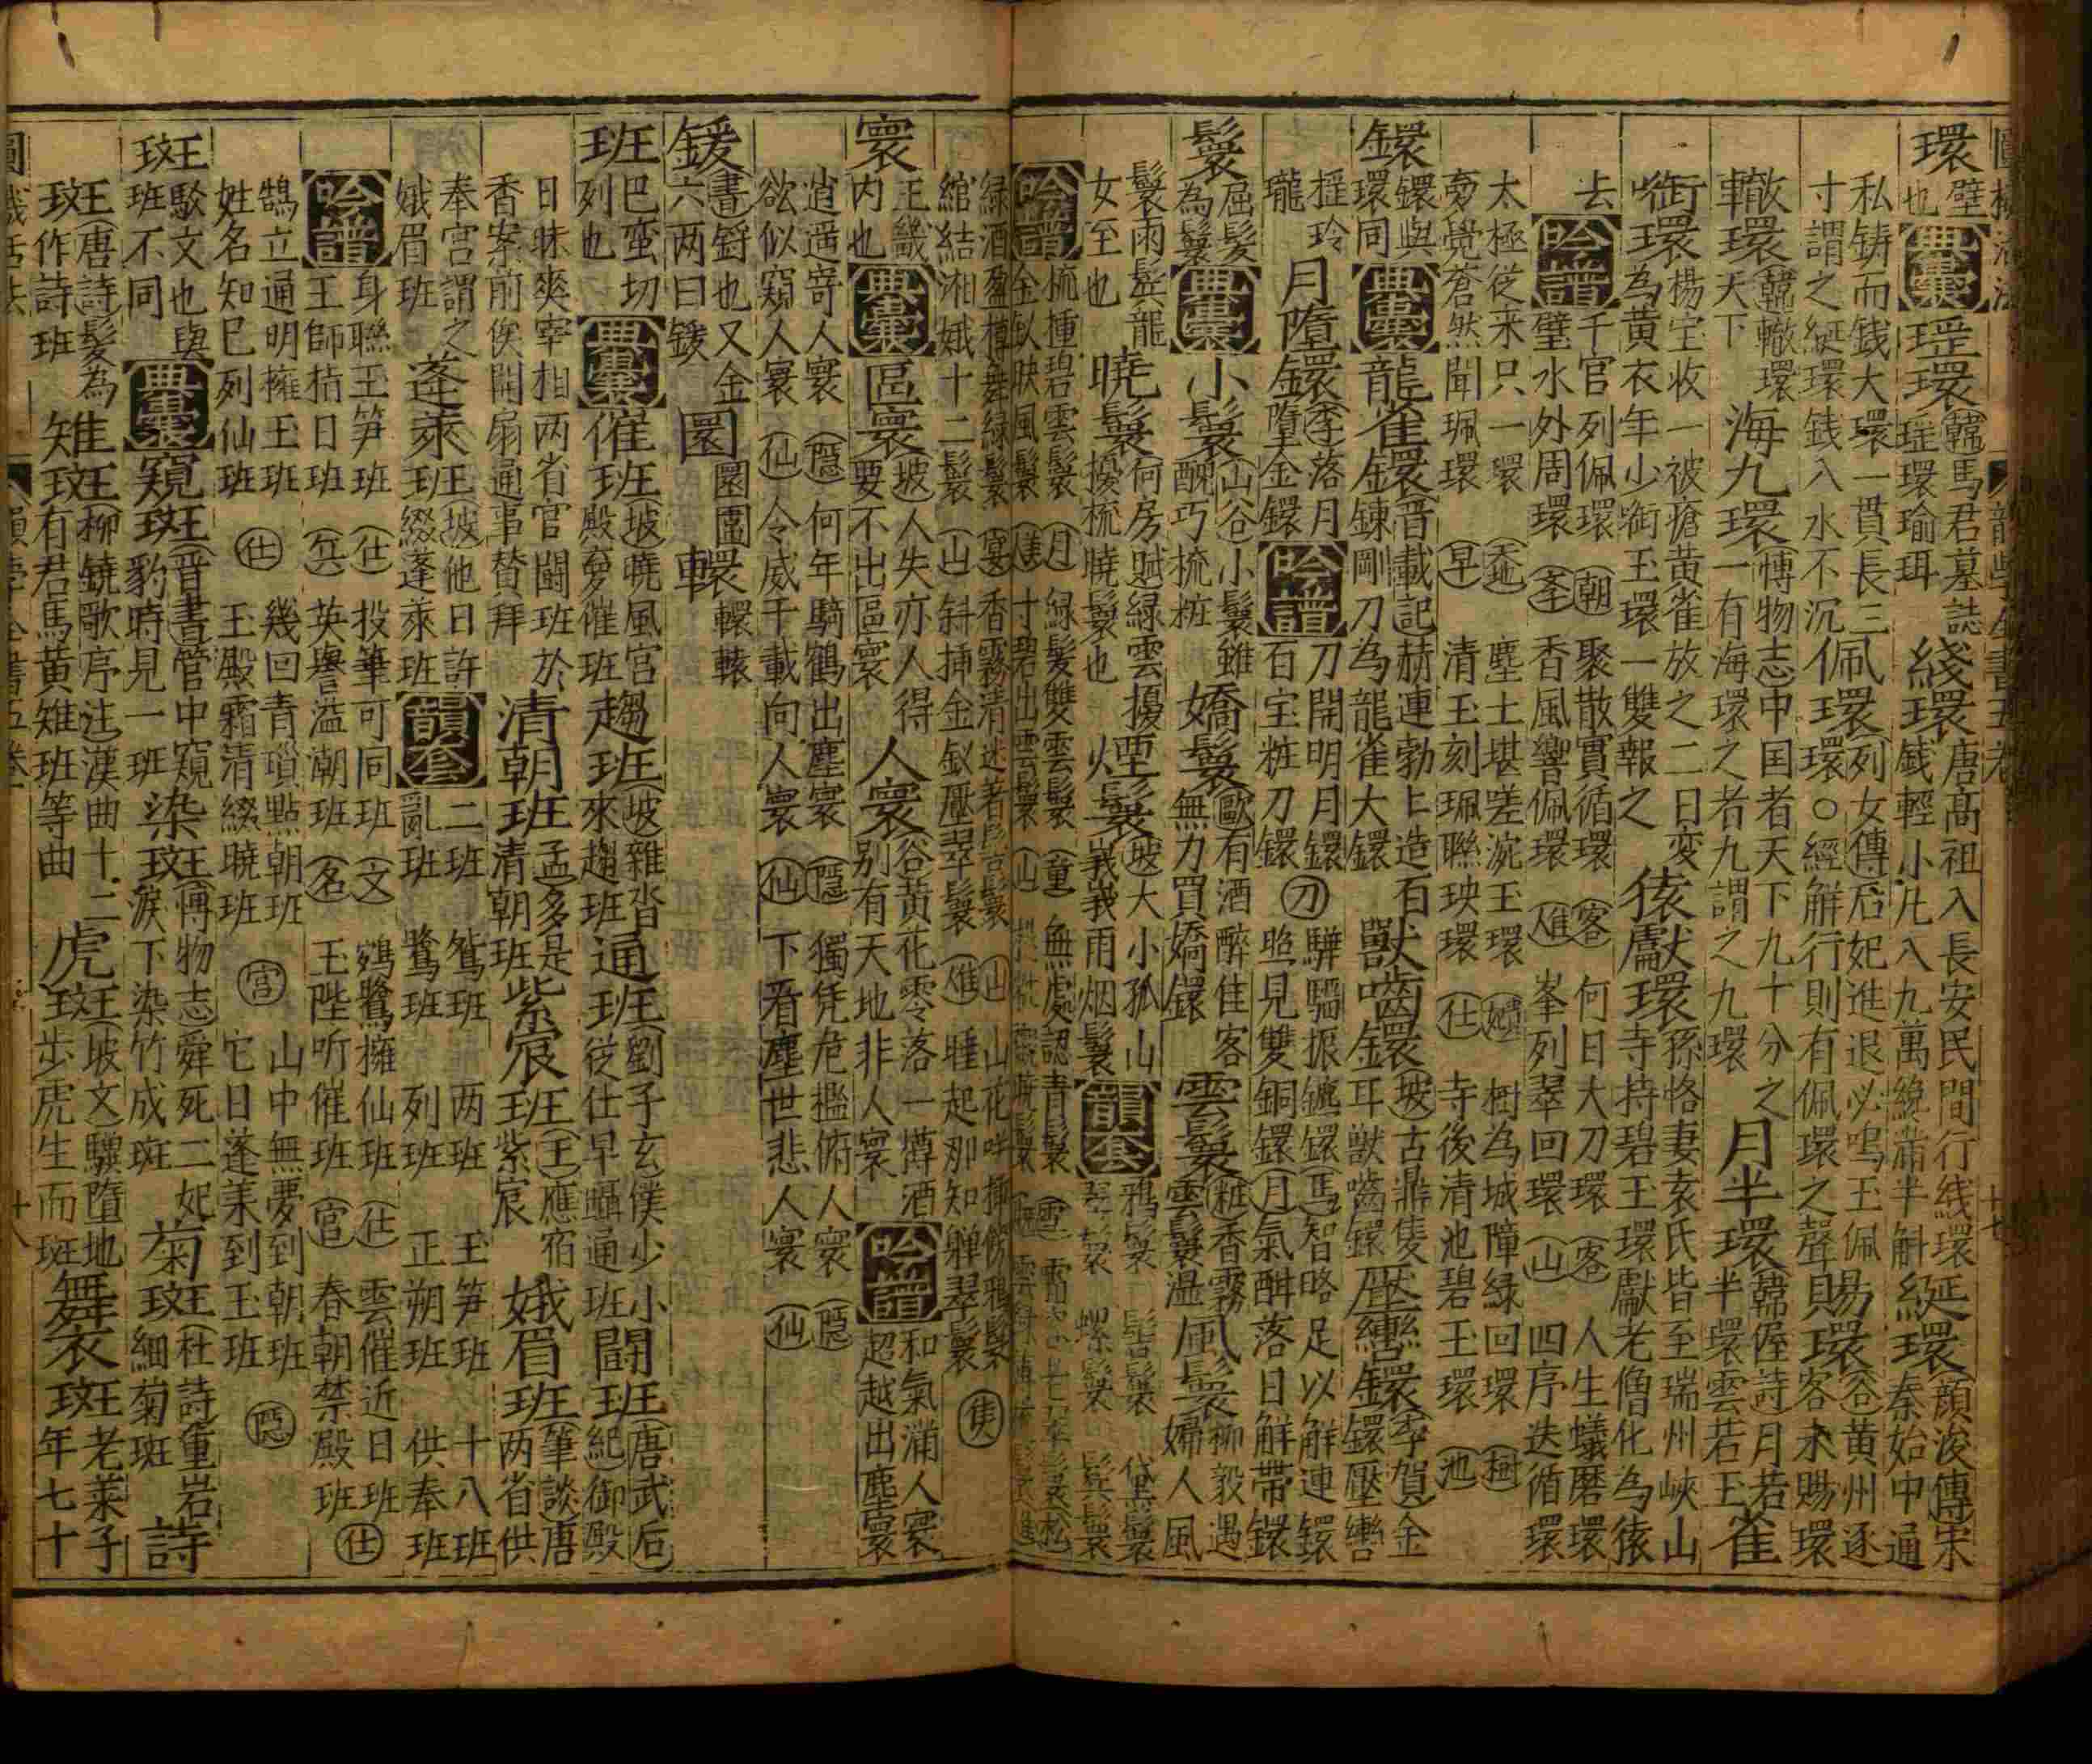 環 璧也 典囊 瑶環 韓馬君墓誌瑶環瑜珥 綫環 唐高祖入長安民間行线環錢輕小凡八九萬纔滿半斛 綖環 顔浚傳宋秦始中通
私铸而錢大環一貫長三寸謂之綖環錢入水不沉 佩環 列女傳后妃進退必鳴玉佩環○經解行則有佩環之聲 賜環 谷黄州逐客未賜環
轍環 韓轍環天下 海九環 博物志中国者天下九十分之一有海環之者九謂之九環 月半環 韓偓詩月若半環雲若玉 雀
啣環 楊宝收一被瘡黄雀放之二日変為黄衣年少啣玉環一雙報之 猿獻環 孫恪妻袁氏皆至瑞州峽山寺持碧玉環獻老僧化為猿
去 吟譜 千官列佩環 朝 聚散實循環 客 何日大刀環 客 人生蟻磨環
璧水外周環 峯 香風響佩環 進 峯列翠回環 山 四序迭循環
太極从来只一環 塵土堪嗟涴玉環 樹為城障緑回環 樹
旁覺蒼然聞珮環 早 清玉刻珮聯玦環 仕 寺後清池碧玉環 池
鐶 鐶與環同 典囊 龍雀鐶 晋載記赫連勃勃上造百鍊剛刀為龍雀大鐶 獸嚙鐶 坡古鼎隻耳獸嚙鐶 壓轡鐶 李賀金鐶壓轡
摇玲瓏 月墮鐶 李落月墮金鐶 吟譜 刀開明月鐶 刀 驊騮振鑣鐶 馬 智略足以解連鐶
百宝粧刀鐶 照見雙銅鐶 月 氣酣落日解帶鐶
鬟 屈髪為鬟 典囊 小鬟 山谷小鬟雖醜巧梳粧 嬌鬟 歐有酒醉佳客無力買嬌鐶 雲鬟 粧香霧雲鬟溫 風鬟 柳毅遇婦人風
鬟雨鬂龍女至也 曉鬟 何房賦緑雲擾擾梳曉鬟也 煙鬟 坡大小孤山峩峩雨烟鬟 韻套 鴉鬟 髻鬟 黛鬟
翠鬟 螺鬟 鬂鬟
吟譜 梳捶碧雲鬟 月 緑髪雙雲鬟 童 無處認青鬟
金釵映風鬟 寸碧出雲鬟 山
緑酒盈樽舞緑鬟 宴 香霧清迷 山 山花
綰結湘娥十二鬟 山 斜揷金釵壓翠鬟 進 睡起那知亸翠鬟 隽
寰 王畿内也 典囊 區寰 坡人失亦人得要不出區寰 人寰 谷黄花零落一樽酒别有天地非人寰 吟譜 和氣滿人寰
超越出塵寰
逍遥竒人寰 隱 何年騎鶴出塵寰 隱 獨凭危檻俯人寰 隱
欲似窺人寰 仙 令威千載向人寰 仙 下看塵世悲人寰 仙
鍰 書鋝也又金六两曰鍰 圜 圜圓 轘 轘轅
班 巴蛮切列也 典囊 催班 坡曉風宫殿夢催班 趨班 坡雜沓來趨班 通班 劉子玄僕少小從仕早躡通班 闘班 唐武后紀御殿
日昧爽宰相两省官闘班於香案前俟開扇通事賛拜 清朝班 孟多是清朝班 紫宸班 王應宿紫宸 娥眉班 筆談唐两省供
奉宫謂之娥眉班 蓬萊班 坡他日許綴蓬萊班 韻套 二班 鴛班 两班 玉笋班 十八班
亂班 鷺班 列班 正朔班 供奉班
吟譜 身聯玉笋班 仕 投筆可同班 文 鵷鷺擁仙班 仕 雲催近日班 仕
王師指日班 兵 英譽溢潮班 名 玉陛听催班 宫 春朝禁殿班
鵠立通明擁玉班 仕 幾回青瑣點朝班 宫 山中無夢到朝班 隱
姓名知已列仙班 玉殿霜清綴曉班 它日蓬莱到玉班
斑 駁文也與班不同 典囊 窺斑 晋書管中窺豹時見一班 染斑 博物志舜死二妃淚下染竹成斑 菊斑 杜詩重岩細菊斑 詩
斑 唐詩髪為作詩班 雉斑 柳鐃歌序註漢曲十二有君馬黄雉班等曲 虎斑 坡文驥墮地步虎生而斑 舞衣斑 老莱子年七十